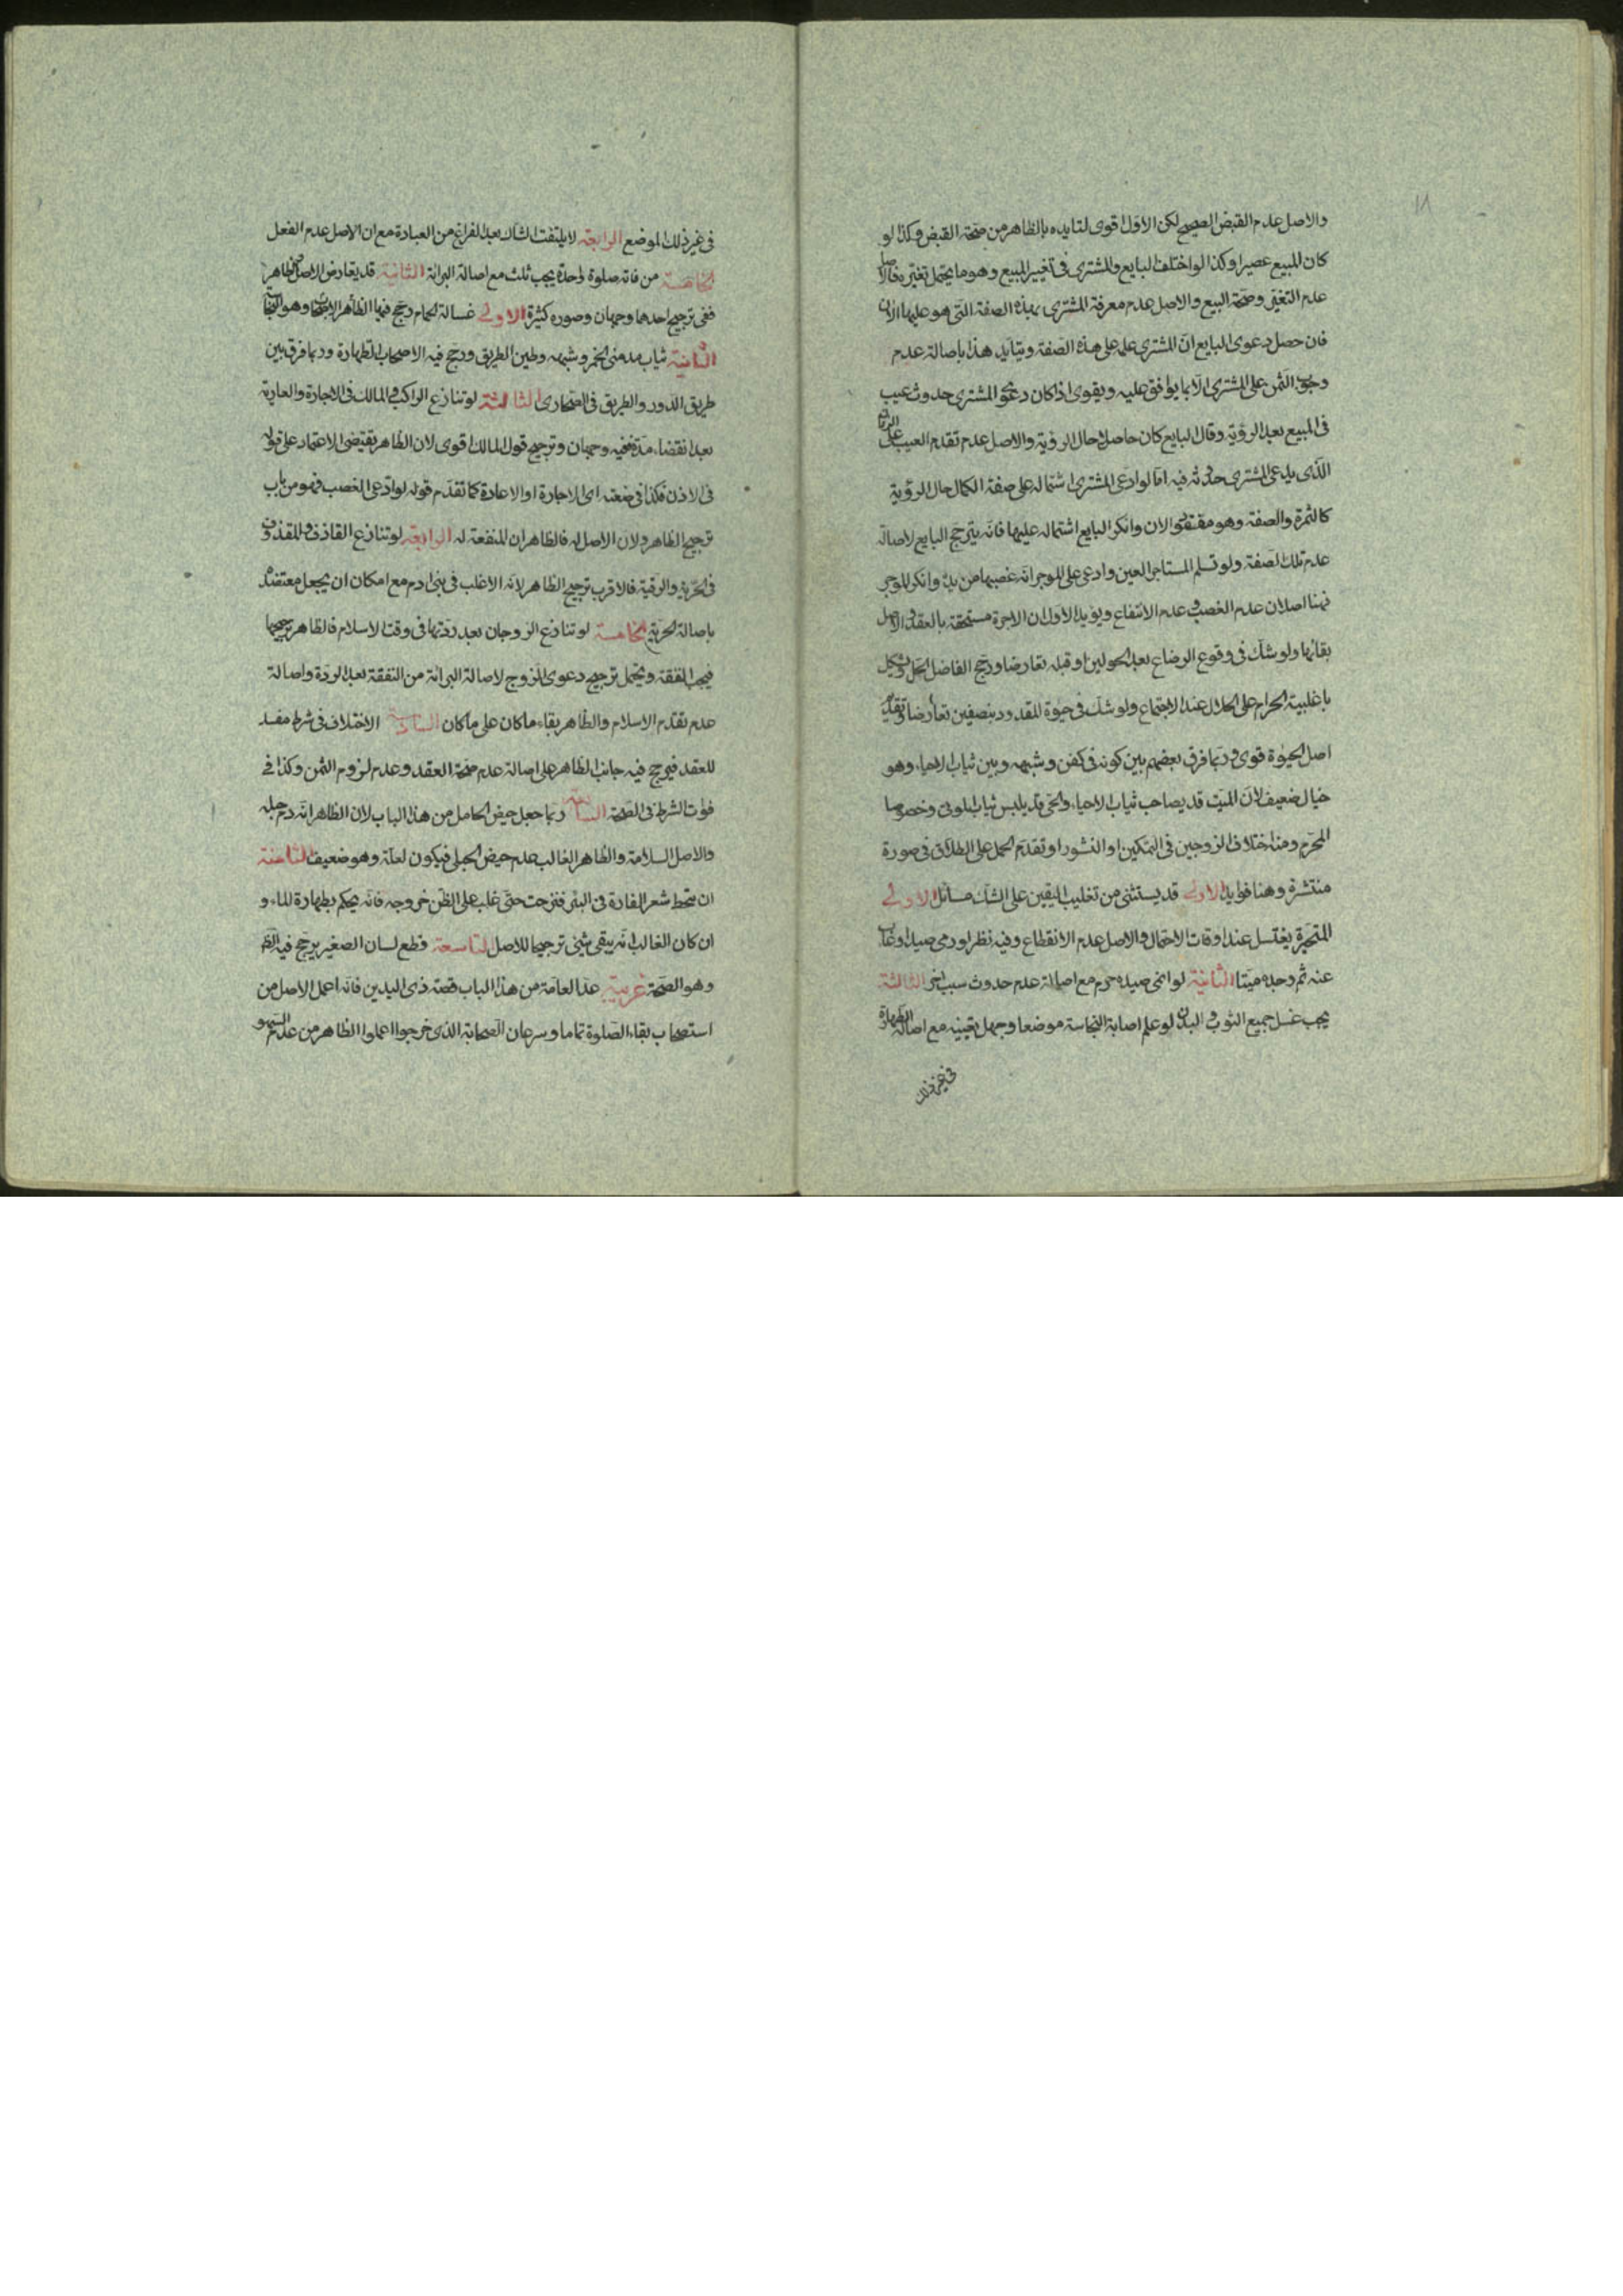 ١٨
والاصل عدم القبض الصحيح لكن الاول اقوى لتايده بالظاهر من صحة القبض وكذا لو
كان المبيع عصيرا وكذا لو اختلف البايع والمشترى فى تغيير المبيع وهو ما يحتمل تغيّره فالاصل
عدم التغيّر وصحة البيع والاصل عدم معرفة المشترى بهذه الصفة التى هو عليها الان
فان حصل دعوى البايع انّ المشترى علمه على هذه الصفة ويتايد هذا باصالة عدم
وجوب الثمن على المشترى الّا بما يوافق عليه ويقوى اذا كان دعوى المشترى حدوث عيب
فى المبيع بعد الرؤية وقال البايع كان حاصلا حال الرؤية والاصل عدم تقدم العيب على
الذى يدعى المشترى حدوثه فيه امّا لو ادّعى المشترى اشتماله على صفة الكمال حال الرؤية
كالثمرة والصفة وهو مفقود الان وانكر البايع اشتماله عليها فانّه يترجح البايع لاصالة
عدم تلك الصفة ولو تسلم المستاجر العين وادعى على الموجر انّه غصبها من يده وانكر الموجر
فهنا اصلان عدم الغصب وعدم الانتفاع ويؤيد الاول ان الاجرة مستحقة بالعقد والاصل
بقائها ولو شكّ فى وقوع الرضاع بعد الحولين او قبله تعارضا ورجح الفاضل الحل ويشكل
باغلبية الحرام على الحلال عند الاجتماع ولو شكّ فى حيوة المقدود بنصفين تعارضا
اصل الحيوة قوى وربما فرق بعضهم بين كونه فى كفن وشبهه وبين ثياب الاحياء وهو
خيال ضعيف لانّ الميّت قد يصاحب ثياب الاحياء والحى قد يلبس ثياب الموتى وخصوصا
المحرم ومنه اختلاف الزوجين فى التمكين او النشوز او تقدم الحمل على الطلاق فى صورة
منتشرة وهنا فوايد الاولى قد يستثنى من تغليب اليقين على الشك مسائل الاولى
المتحيّرة يغتسل عند اوقات الاحتمال والاصل عدم الانقطاع وفيه نظر او رمى صيدا وغاب
عنه ثم وجده ميتا الثانية لو انمى صيده حرم مع اصالة عدم حدوث سبب اخر الثالثة
يجب غسل جميع الثوب والبدن لو علم اصابة النجاسة موضعا وجهل تعيينه مع اصالة الطهارة
فى غير ذلك
فى غير ذلك الموضع الرابعة لا يلتفت الشاك بعد الفراغ من العبادة مع ان الاصل عدم الفعل
الخامسة من فاته صلوة واحدة يجب ثلث مع اصالة البرائة الثانية قد يتعارض الاصل والظاهر
ففى ترجيح احدهما وجهان وصوره كثيرة الاولى غسالة الحمام رجح فيها الظاهر وهو النجاسة
الثانية ثياب مدمنى الخمر وشبهه وطين الطريق ورجح فيه الاصحاب الطهارة وربما فرق بين
طريق الدور والطريق فى الصحارى الثالثة لو تنازع الراكب والمالك فى الاجارة والعارية
بعد انقضاء مدة ففيه وجهان وترجيح قول المالك اقوى لان الظاهر يقتضى الاعتماد على قوله
فى الاذن فكذا فى صفته اى الاجارة او الاعادة كما تقدّم قوله لو ادّعى الغصب فهو من باب
ترجيح الظاهر ولان الاصل له فالظاهر ان المنفعة له الرابعة لو تنازع القاذف والمقذوف
فى الحرّية والرقية فالاقرب ترجيح الظاهر لانه الاغلب فى بنى ادم مع امكان ان يجعل معتضد
باصالة الحرية الخامسة لو تنازع الزوجان بعد ردّتها فى وقت الاسلام فالظاهر ترجيحها
فيجب النفقة ويحتمل ترجيح دعوى الزوج لاصالة البرائة من النفقة بعد الردة واصالة
عدم تقدّم الاسلام والظاهر بقاء ما كان على ما كان السادسة الاختلاف فى شرط مفسد
للعقد فيرجح فيه جانب الظاهر على اصالة عدم صحة العقد وعدم لزوم الثمن وكذا فى
فوات الشرط فى الصحة السابعة ربما جعل حيض الحامل من هذا الباب لان الظاهر انّه دم جبلة
والاصل السلامة والظاهر الغالب عدم حيض الحبلى فيكون لعلّة وهو ضعيف الثامنة
ان يتمعط شعر الفارة فى البئر فنزحت حتى غلب على الظن خروجه فانّه يحكم بطهارة الماء و
ان كان الغالب انّه يبقى شئ ترجيحا للاصل التاسعة قطع لسان الصغير يرجح فيه الظ
وهو الصحة غريبة عدّ العامة من هذا الباب قصة ذى اليدين فانّه اعمل الاصل من
استصحاب بقاء الصلوة تماما وسرعان الصحابة الذى خرجوا اعملوا الظاهر من عدم السهو